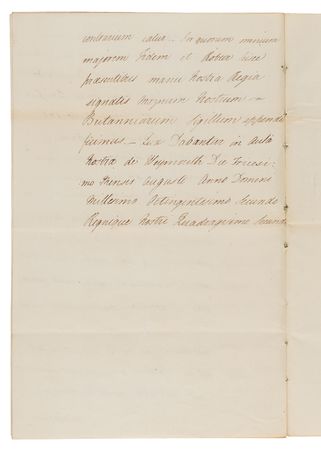 contrarium causa. In quorum omnium
majorem fidem et Robur hisce
præsentibus manu Nostra Regia
signatis Magnum Nostrum
Britanniarum Sigillum appendi
fecimus. Quæ Dabantur in Aulâ
Nostra de Weymouth Die Tricesi-
mo Mensis Augusti Anno Domini
Millesimo Octingentesimo Secundo
Regnique Nostri Quadragesimo Secundo